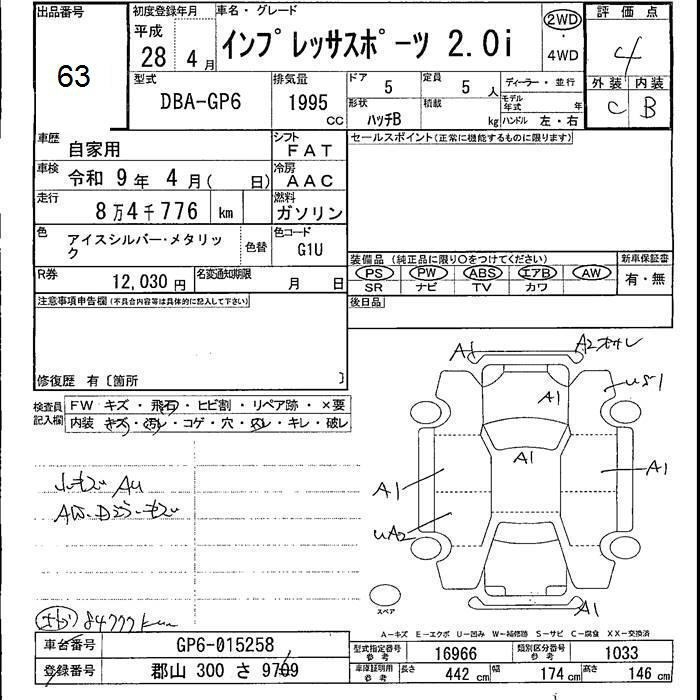 出品番号
63
初度登録年月
平成
28 4月
車名・グレード
インプレッサスポーツ 2.0i
2WD
・
4WD
評価点
4
外装 内装
C B
型式
DBA-GP6
排気量
1995 CC
ドア
5
定員
5 人
形状
ハッチB
積載
kg
ディーラー・並行
モデル年式 年
ハンドル 左・右
車歴
自家用
シフト
FAT
車検
令和 9年 4月( 日)
冷房
AAC
走行
8万4千776 km
燃料
ガソリン
色
アイスシルバー・メタリック
色替
色コード
G1U
R券
12,030円
名変通知期限
月 日
セールスポイント(正常に機能するものに限ります)
装備品 (純正品に限り○をつけてください)
PS PW ABS エアB AW
SR ナビ TV カワ
新車保証書
有・無
後日品
注意事項申告欄(不具合内容等は具体的に記入して下さい)
修復歴 有〔箇所 〕
検査員記入欄
FW キズ・飛石・ヒビ割・リペア跡・×要
内装 キズ・汚レ・コゲ・穴・灰レ・キレ・破レ
A1
A2
US1
A1
A1
A1
A1
UA2
A1
スペア
84777km
A-キズ E-エクボ U-凹み W-補修跡 S-サビ C-腐食 XX-交換済
車台番号
GP6-015258
登録番号
郡山 300 さ
型式指定番号
参考
16966
類別区分番号
参考
1033
車庫証明用
参考
長さ 442 cm
幅 174 cm
高さ 146 cm